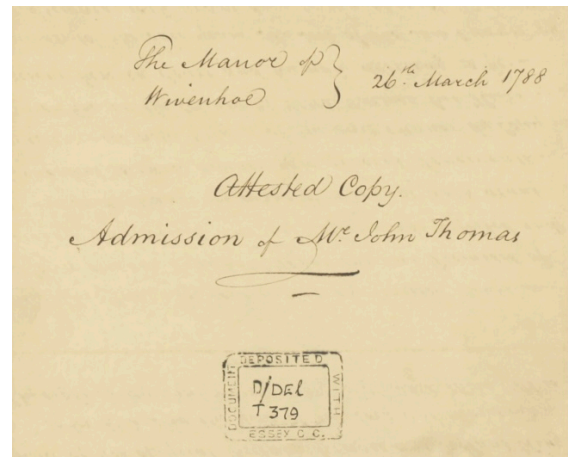 The Manor of
Wivenhoe } 26th March 1788
Attested Copy.
Admission of Mr. John Thomas
DOCUMENT DEPOSITED WITH
D/DEl
T 379
ESSEX C.C.